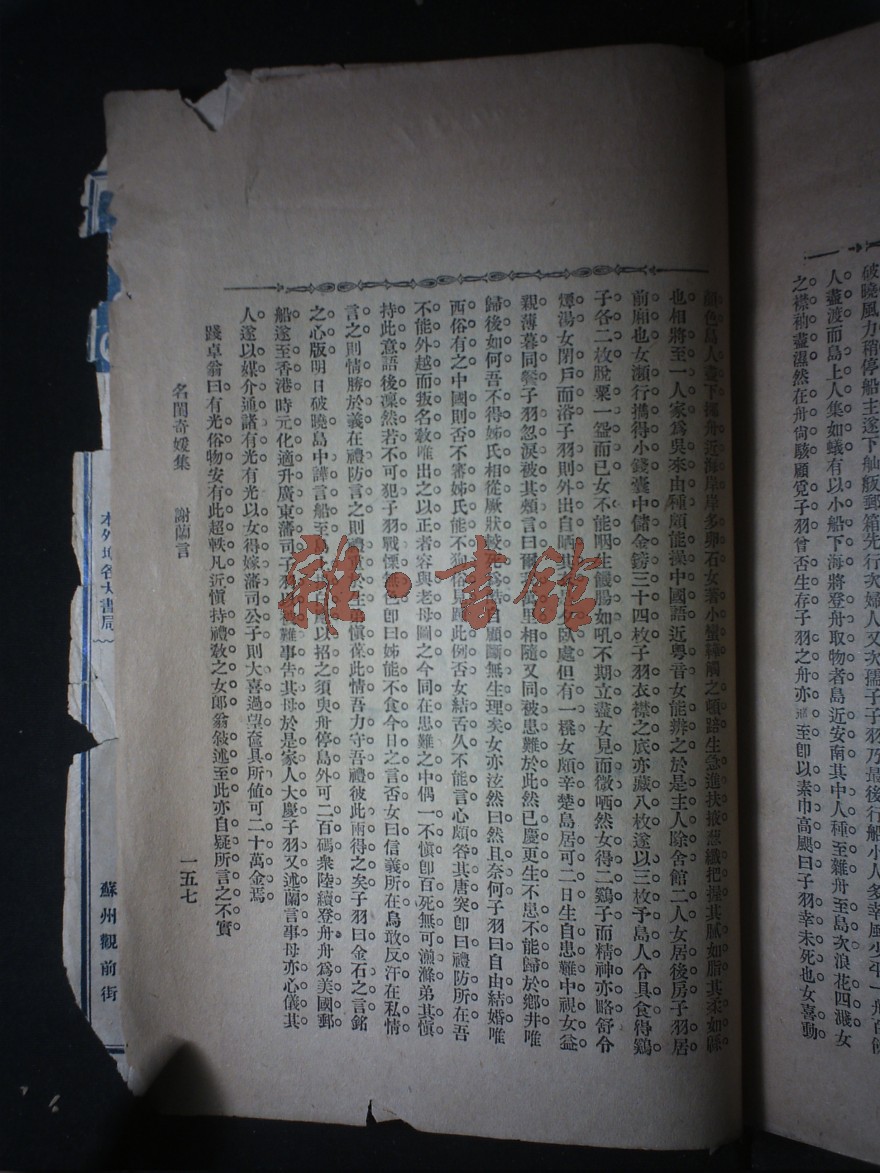 破曉風力稍停船主遂下舢舨郵箱先行次婦人又次孺子子羽乃最後行船小人多幸風少平一舟百
人盡渡而島上人集如蟻有以小船下海將登舟取物者島近安南其中人種至雜舟至島次浪花四濺女
之襟袖盡濕然在舟尙駭顧覓子羽曾否生存子羽之舟亦至卽以素巾高颺曰子羽幸未死也女喜動
顏色島人盡下攏舟近海岸岸多卵石女著小蠻鞾觸之頓踣生急進扶掖葱纖把握其膩如脂其柔如緜
也相將至一人家爲吳來由種頗能操中國語近粤音女能辨之於是主人除舍館二人女居後房子羽居
前廂也女瀕行攜得小錢囊中儲金鎊三十四枚子羽衣襟之底亦藏八枚遂以三枚予島人令具食得鷄
子各二枚脫粟一盌而已女不能咽生饑腸如吼不期立盡女見而微哂然女得二鷄子而精神亦略舒令
燂湯女閉戶而浴子羽則外出自哂其 女臥處但有一 女頗辛楚島居可二日生自患難中視女益
親薄暮同 子羽忽淚被其頰言曰爾 萬里相隨又同被患難於此然已慶更生不患不能歸於鄉井唯
歸後如何吾不得姊氏相從厥狀較死爲 自顧斷無生理矣女亦泫然曰然且奈何子羽曰自由結婚唯
西俗有之中國則否不審姊氏能不狥俗見 此例否女結舌久不能言心頗咎其唐突卽曰禮防所在吾
不能外越而叛名敎唯出之以正者容與老母圖之今同在患難之中偶一不愼卽百死無可湔滌弟其愼
持此意語後凜然若不可犯子羽戰慄 色卽曰姊能不食今日之言否女曰信義所在烏敢反汗在私情
言之則情勝於義在禮防言之則禮 於 愼葆此情吾力守吾禮彼此兩得之矣子羽曰金石之言銘
之心版明日破曉島中譁言船至島 應以招之須臾舟停島外可二百碼衆陸續登舟舟爲美國郵
船遂至香港時元化適升廣東藩司子羽 被難事吿其母於是家人大慶子羽又述蘭言事母亦心儀其
人遂以媒介通諸有光有光以女得嫁藩司公子則大喜過望奩具所値可二十萬金焉
踐卓翁曰有光俗物安有此超軼凡近愼持禮敎之女郞翁敍述至此亦自疑所言之不實
名閨奇媛集　謝蘭言
一五七
雜·書館
本外埠各大書局
蘇州觀前街